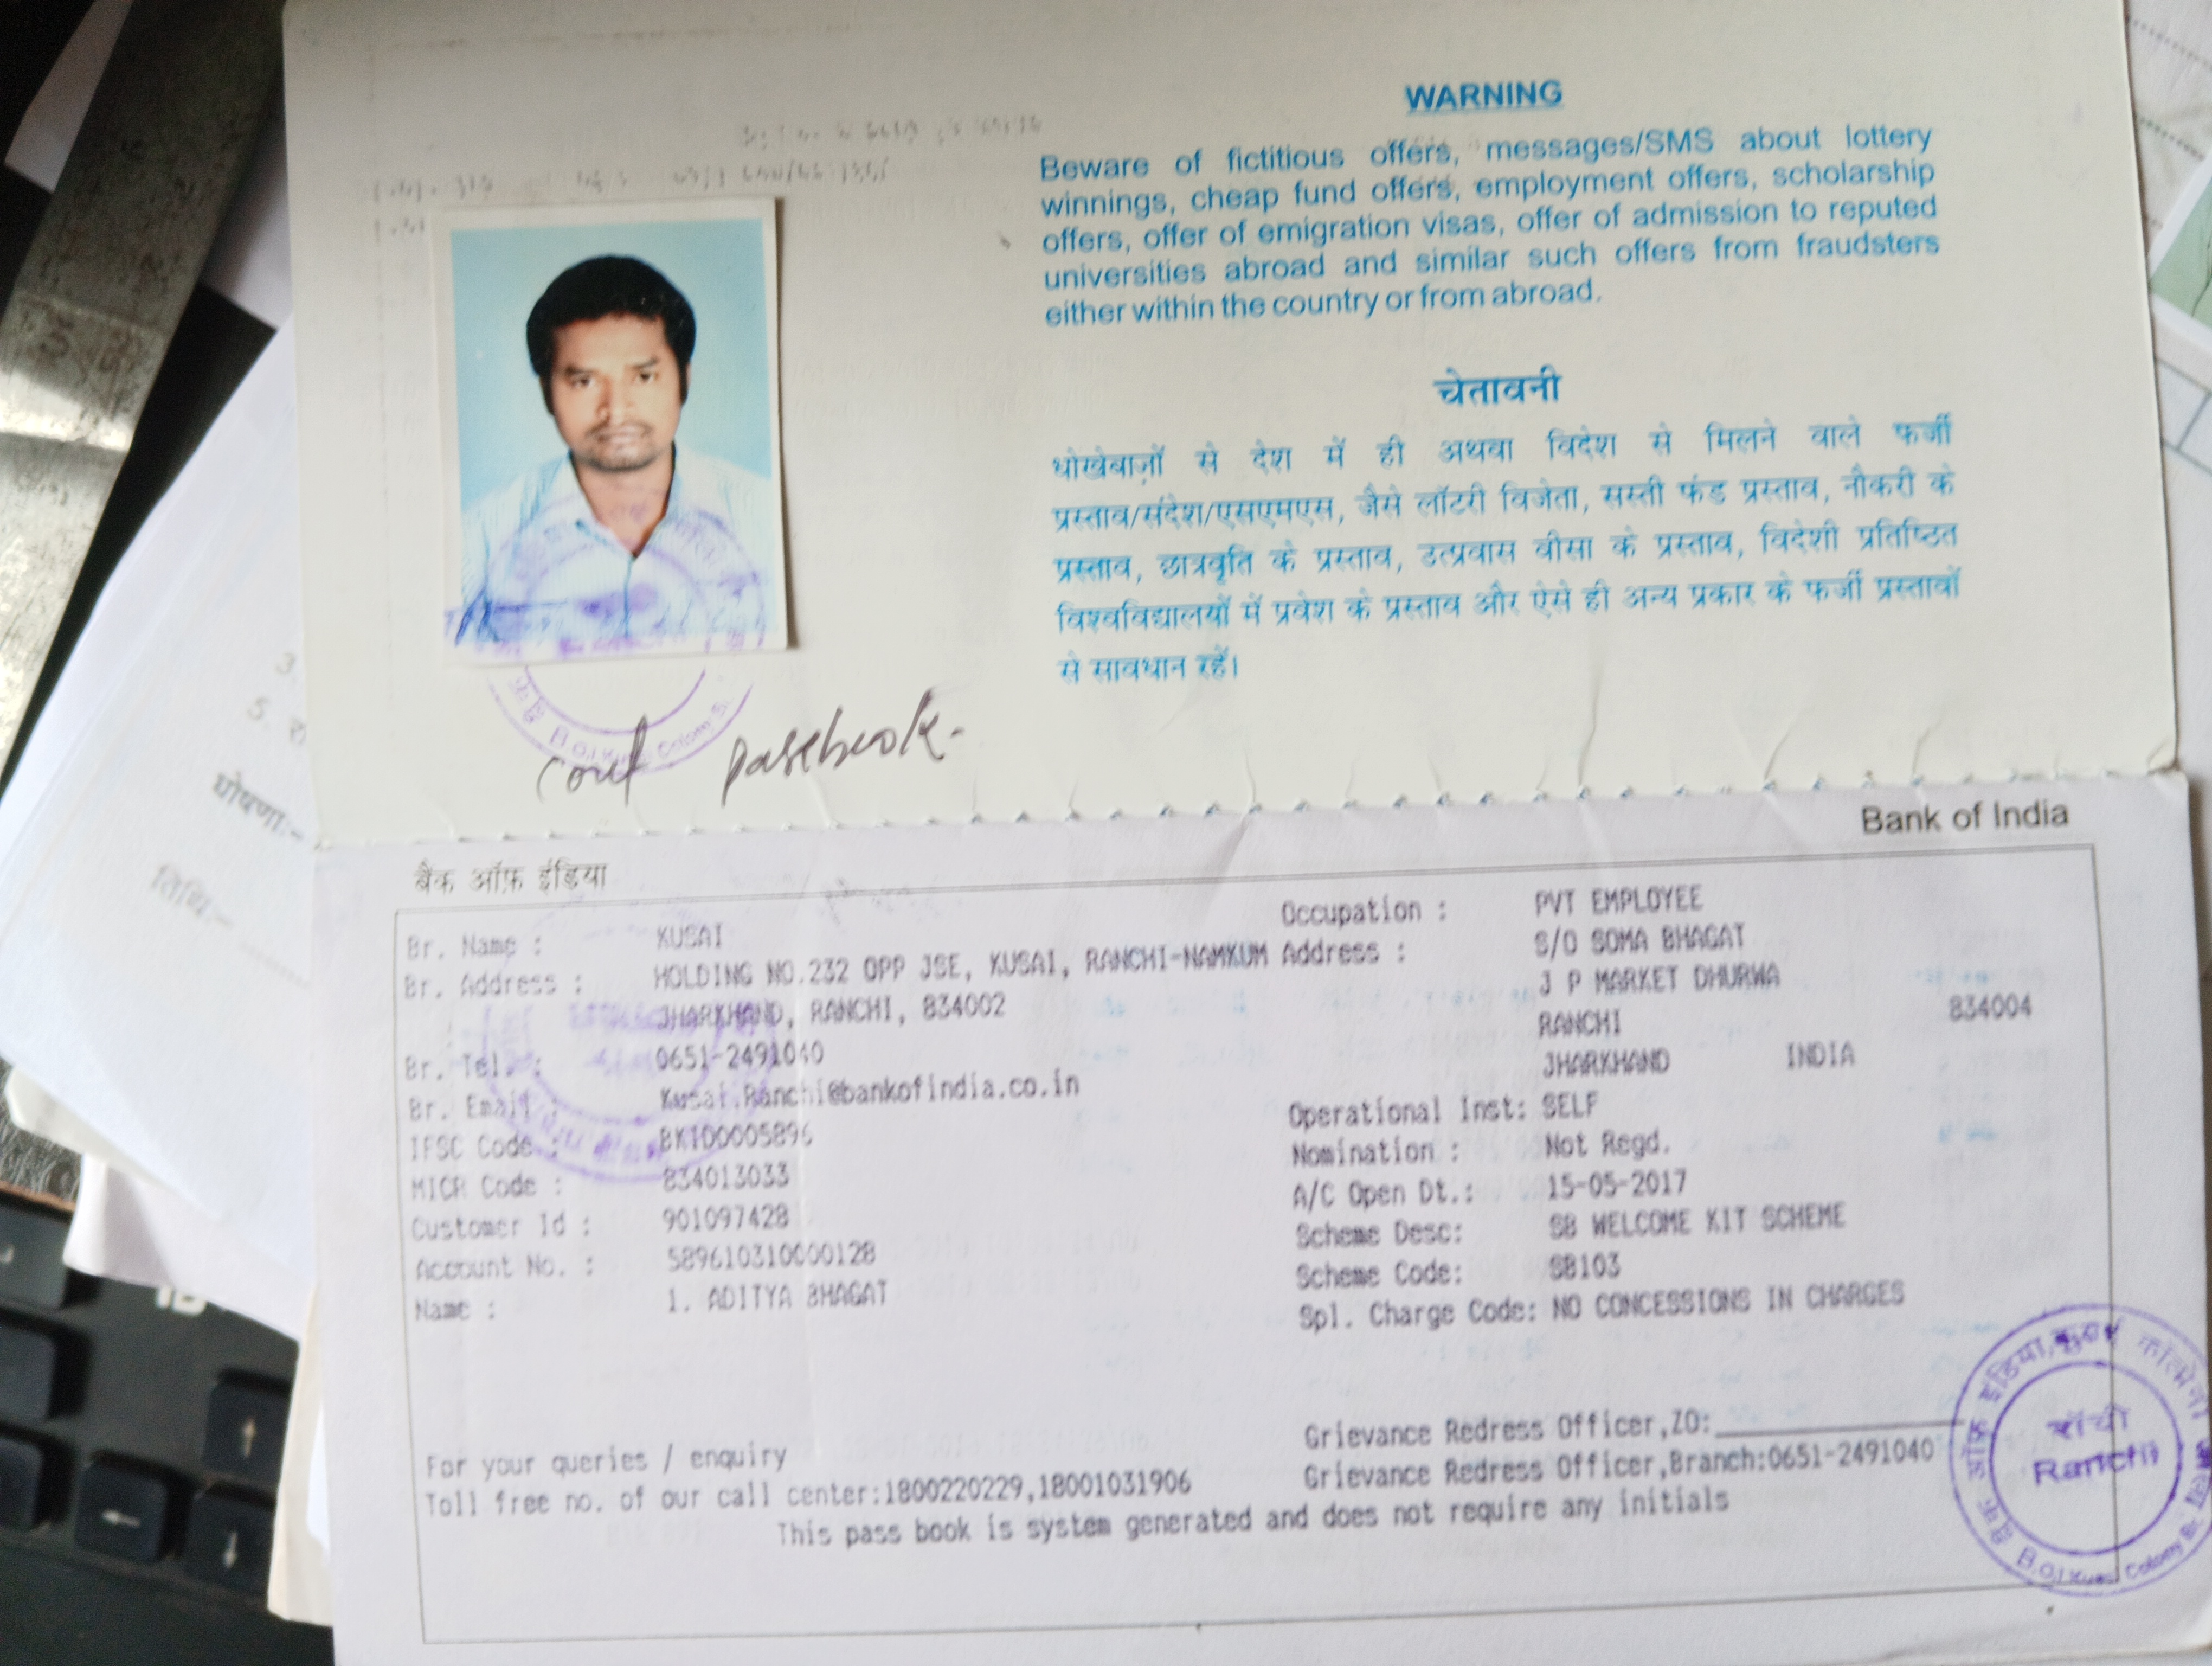 WARNING
Beware of fictitious offers, messages/SMS about lottery
winnings, cheap fund offers, employment offers, scholarship
offers, offer of emigration visas, offer of admission to reputed
universities abroad and similar such offers from fraudsters
either within the country or from abroad.
चेतावनी
धोखेबाज़ों से देश में ही अथवा विदेश से मिलने वाले फर्जी
प्रस्ताव/संदेश/एसएमएस, जैसे लॉटरी विजेता, सस्ती फंड प्रस्ताव, नौकरी के
प्रस्ताव, छात्रवृति के प्रस्ताव, उत्प्रवास वीसा के प्रस्ताव, विदेशी प्रतिष्ठित
विश्वविद्यालयों में प्रवेश के प्रस्ताव और ऐसे ही अन्य प्रकार के फर्जी प्रस्तावों
से सावधान रहें।
passbook.
बैंक ऑफ़ इंडिया
Bank of India
Br. Name : KUSAI
Br. Address : HOLDING NO.232 OPP JSE, KUSAI, RANCHI-NAMKUM
JHARKHAND, RANCHI, 834002
Br. Tel. : 0651-2491040
Br. Email : Kusai.Ranchi@bankofindia.co.in
IFSC Code : BKID0005896
MICR Code : 834013033
Customer Id : 901097428
Account No. : 589610310000128
Name : 1. ADITYA BHAGAT
Occupation : PVT EMPLOYEE
Address : S/O SOMA BHAGAT
J P MARKET DHURWA
RANCHI 834004
JHARKHAND INDIA
Operational Inst: SELF
Nomination : Not Regd.
A/C Open Dt.: 15-05-2017
Scheme Desc: SB WELCOME KIT SCHEME
Scheme Code: SB103
Spl. Charge Code: NO CONCESSIONS IN CHARGES
Grievance Redress Officer,ZO:
Grievance Redress Officer,Branch:0651-2491040
For your queries / enquiry
Toll free no. of our call center:1800220229,18001031906
This pass book is system generated and does not require any initials
राँची
Ranchi
घोषणा:-
तिथि:-